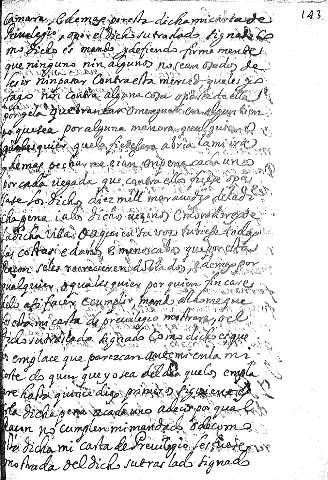 143
camara, E demas por esta dicha mi carta de
Previlegio, o por el dicho su traslado signado Co
mo dicho es mando y defiendo firmemente
que ninguno nin algunos no sean osados de
les ir nin pasar contra esta merced que les yo
fago nin contra alguna cosa o parte de ella
por gela quebrantar o menguar en algun tiem
po que sea por alguna manera ca qualquier o
qualesquier que lo fiziesen abria la mi ira
y demas pechar me ian en pena cada uno
por cada vegada que contra ello fuese o pa
sase los dichos diez mill maravedis de la di
cha pena i a los dichos vezinos E moradores de
la dicha villa o a quien su voz tubiese todas
las costas e daños E menoscabos que por esta
razon se les recreciesen doblados, e demas por
qualquier, o qualesquier por quien fincare
de lo asi facer E cumplir, mando al ome que
esta mi carta de previlegio mostrare, o el
traslado signado Como dicho es que
los emplace que parezcan ante mi en la mi
corte do quier que yo sea del dia que los empla
zare hasta quince dias primeros siguientes so
la dicha pena a cada uno a decir por qual
razon no cumplen mi mandado E de como
la dicha mi carta de Previlegio les fuere
mostrada o el dicho su traslado signado